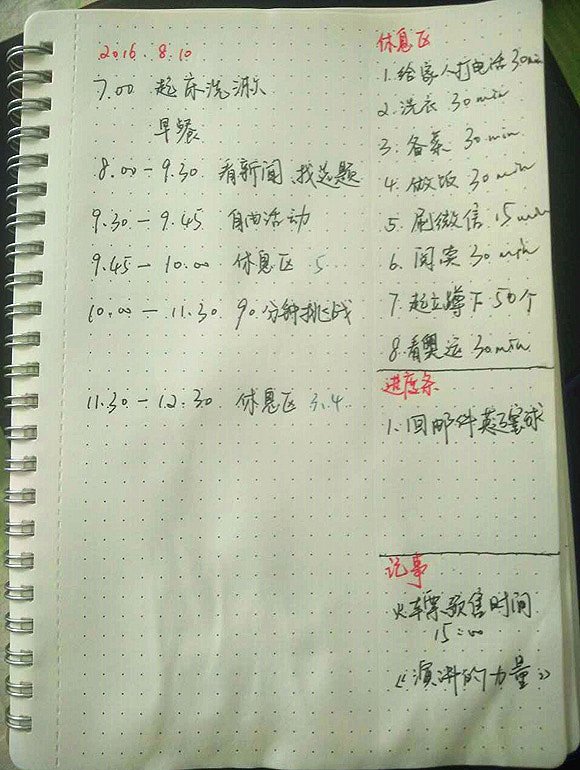 2016.8.10
7.00 起床洗漱
早餐
8.00-9.30 看新闻、找选题
9.30-9.45 自由活动
9.45-10.00 休息区 5
10.00-11.30 90分钟挑战
11.30-12.30 休息区 3.4
休息区
1.给家人打电话30min
2.洗衣 30min
3.备菜 30min
4.做饭 30min
5.刷微信 15min
6.阅读 30min
7.起立蹲下50个
8.看奥运 30min
进度条
1.回邮件
记事
火车票预售时间
15:00
《演讲的力量》